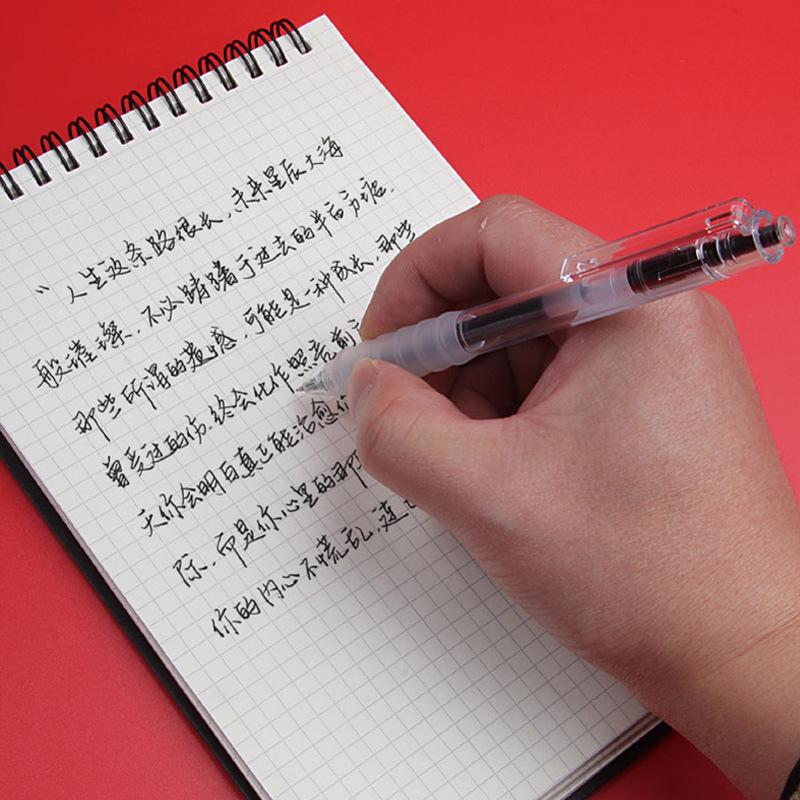 “人生这条路很长，未来星辰大海
般璀璨，不必踌躇于过去的半亩方塘．
那些所谓的遗憾，可能是一种成长，那些
曾受过的伤，终会化作照亮前
天你会明白真正能治愈你
际，而是你心里的那
你的内心不慌乱，连